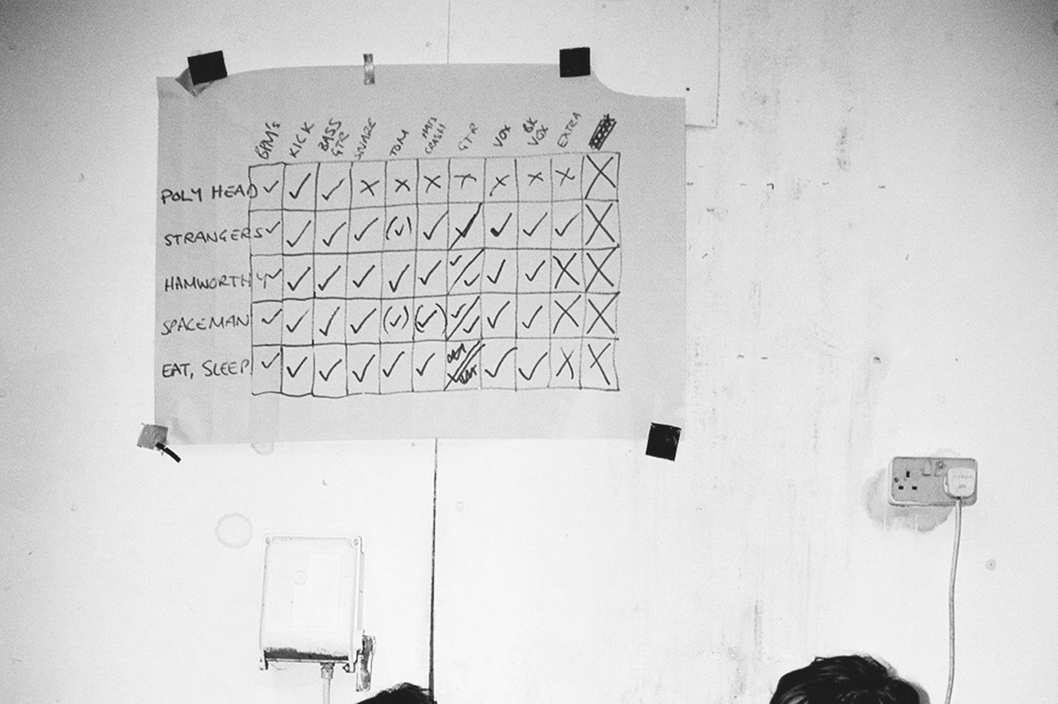 BPM'S KICK BASS GTR SNARE TOM HATS CRASH GTR VOX BK VOX EXTRA
POLY HEAD ✓ ✓ ✓ X X X X X X X X
STRANGERS ✓ ✓ ✓ ✓ (✓) ✓ ✓ ✓ ✓ X
HAMWORTHY ✓ ✓ ✓ ✓ ✓ ✓ ✓ ✓ ✓ ✓ X X
SPACEMAN ✓ ✓ ✓ ✓ (✓) (✓) ✓ ✓ ✓ ✓ X X
EAT, SLEEP ✓ ✓ ✓ ✓ ✓ ✓ ✓ ✓ X X